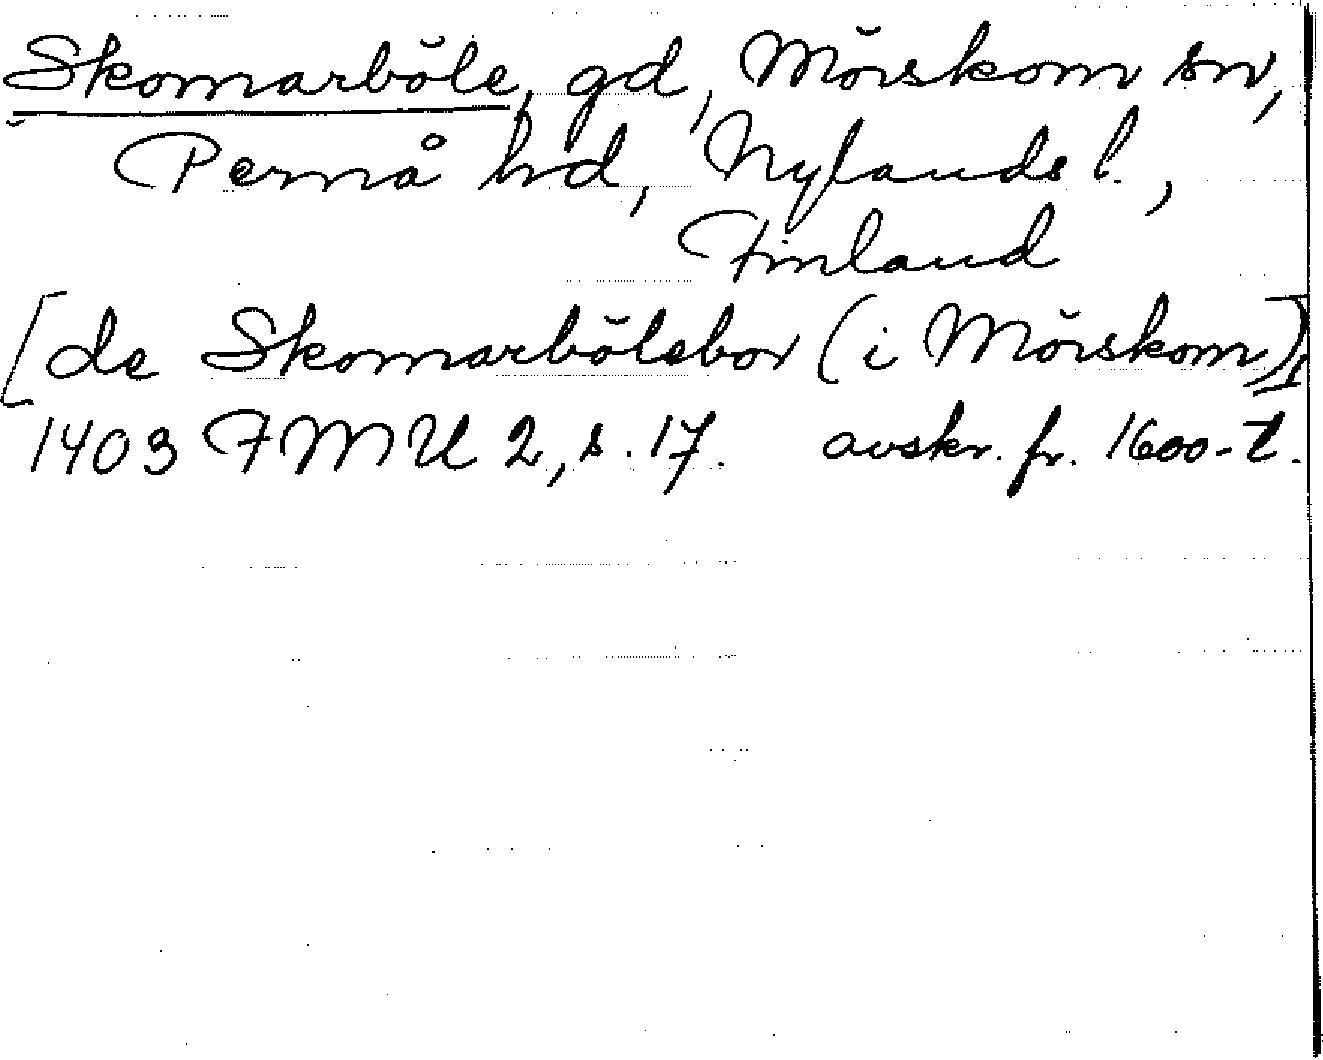 Skomarböle, gd, Mörskom sn,
Pernå hd, Nylands l.,
Finland
[de Skomarbölebor (i Mörskom)]
1403 FMU 2, s. 17. avskr. fr. 1600-t.